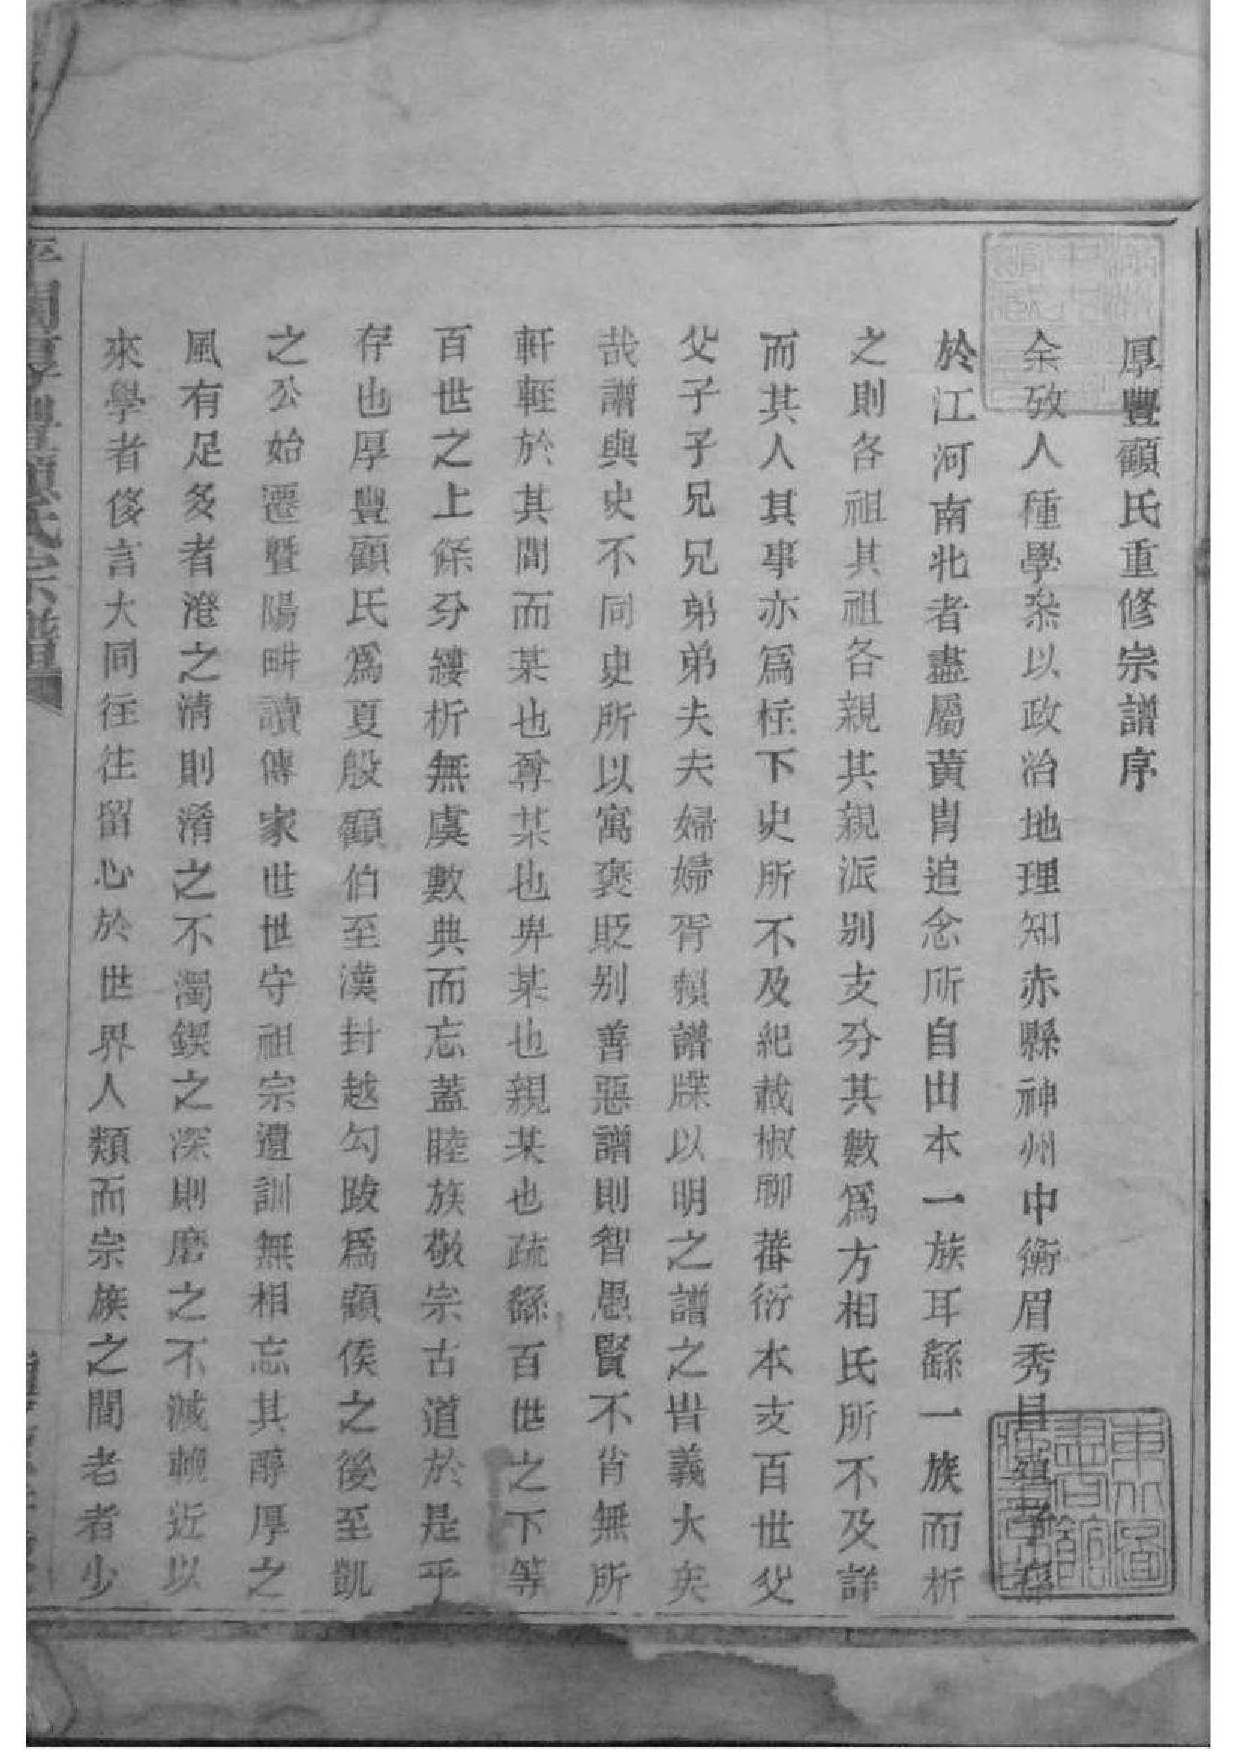 厚豐顧氏重修宗譜序
余攷人種學叅以政治地理知赤縣神州中衡眉秀目
於江河南北者盡屬黃胄追念所自出本一族耳繇一族而析
之則各祖其祖各親其親派别支分其數爲方相氏所不及詳
而其人其事亦爲柱下史所不及紀載椒聊蕃衍本支百世父
父子子兄兄弟弟夫夫婦婦胥賴譜牒以明之譜之旹義大矣
哉譜與史不同史所以寓褒貶别善惡譜則智愚賢不肖無所
軒輊於其間而某也尊某也卑某也親某也疏繇百世之下等
百世之上條分縷析無虞數典而忘蓋睦族敬宗古道於是乎
存也厚豐顧氏爲夏殷顧伯至漢封越勾踐爲顧侯之後至凱
之公始遷暨陽畊讀傳家世世守祖宗遺訓無相忘其醇厚之
風有足多者港之清則淆之不濁鍥之深則磨之不滅輓近以
來學者侈言大同往往留心於世界人類而宗族之間老者少
厚豐顧氏宗譜